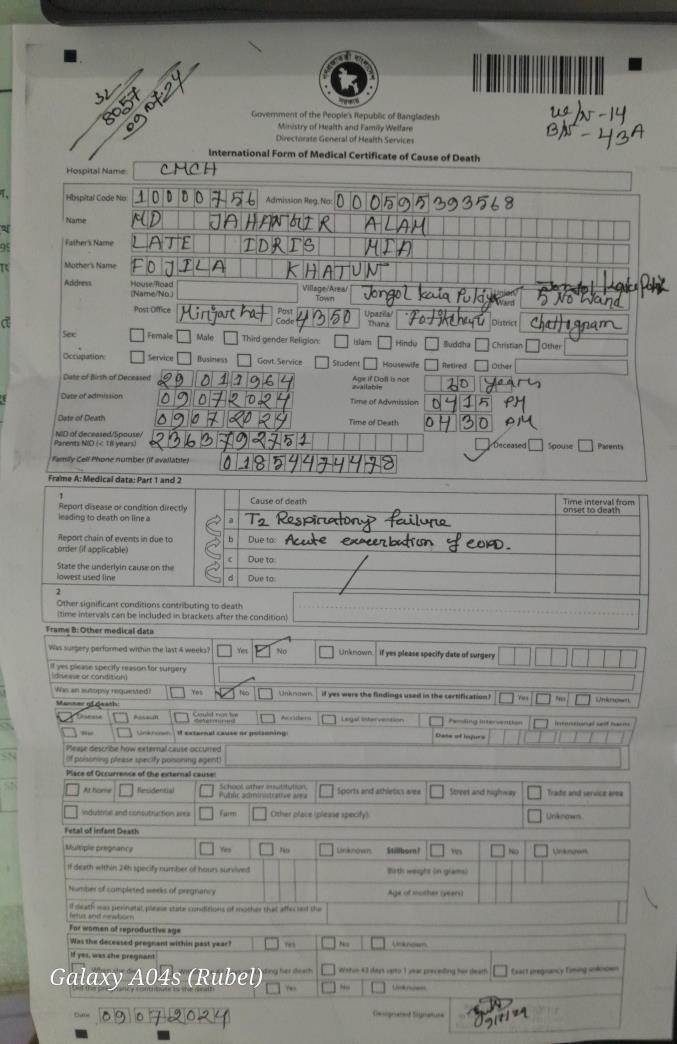 32
8057
09/07/24
গণপ্রজাতন্ত্রী বাংলাদেশ
সরকার
Government of the People's Republic of Bangladesh
Ministry of Health and Family Welfare
Directorate General of Health Services
-14
-43A
International Form of Medical Certificate of Cause of Death
Hospital Name: CMCH
Hospital Code No: 10000756 Admission Reg. No: 000595393568
Name MD JAHANGIR ALAM
Father's Name LATE IDRIS MIA
Mother's Name FOJILA KHATUN
Address House/Road (Name/No.) Village/Area/Town Jongol Union/Ward 5 No Ward
Post Office Mirjarhat Post Code 4350 Upazila/Thana District Chattogram
Sex: Female Male Third gender Religion: Islam Hindu Buddha Christian Other
Occupation: Service Business Govt. Service Student Housewife Retired Other
Date of Birth of Deceased 29 01 1964 Age if DoB is not available 60 years
Date of admission 09072024 Time of Advmission 0415 PM
Date of Death 09072024 Time of Death 0430 PM
NID of deceased/Spouse/Parents NID (< 18 years) 2363792751 Deceased Spouse Parents
Family Cell Phone number (if available) 01854474478
Frame A: Medical data: Part 1 and 2
1 Cause of death Time interval from onset to death
Report disease or condition directly leading to death on line a
a T2 Respiratory failure
Report chain of events in due to order (if applicable)
b Due to: Acute exacerbation of COPD.
c Due to:
State the underlyin cause on the lowest used line
d Due to:
2
Other significant conditions contributing to death
(time intervals can be included in brackets after the condition)
Frame B: Other medical data
Was surgery performed within the last 4 weeks? Yes No Unknown. If yes please specify date of surgery
If yes please specify reason for surgery (disease or condition)
Was an autopsy requested? Yes No Unknown. If yes were the findings used in the certification? Yes No Unknown.
Manner of death:
Disease Assault Could not be determined Accident Legal Intervention Pending Intervention Intentional self harm
War Unknown. If external cause or poisoning: Date of injury
Please describe how external cause occurred (if poisoning please specify poisoning agent)
Place of Occurrence of the external cause:
At home Residential School other insutitution, Public administrative area Sports and athletics area Street and highway Trade and service area
Industrial and consutruction area Farm Other place (please specify) Unknown.
Fetal of infant Death
Multiple pregnancy Yes No Unknown. Stillborn? Yes No Unknown.
If death within 24h specify number of hours survived Birth weight (in grams)
Number of completed weeks of pregnancy Age of mother (years)
If death was perinatal, please state conditions of mother that affected the fetus and newborn
For women of reproductive age
Was the deceased pregnant within past year? Yes No Unknown.
If yes, was she pregnant
her death Within 43 days upto 1 year preceding her death Exact pregnancy timing unknown
Did the pregnancy contribute to the death Yes No Unknown.
Galaxy A04s (Rubel)
Date 09072024 Designated Signature